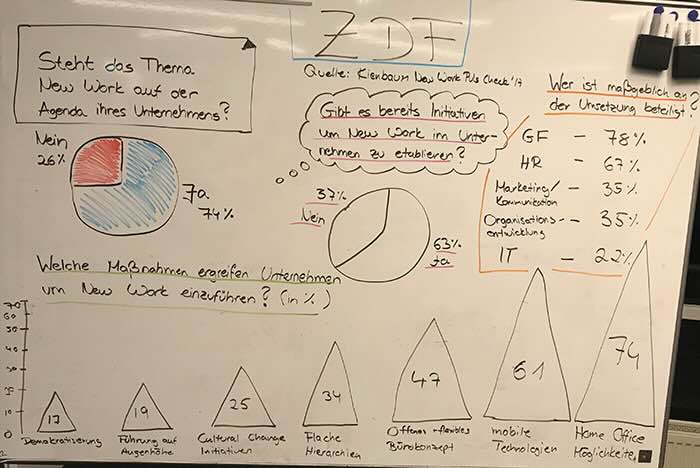 ZDF
Quelle: Kienbaum New Work Puls Check '17
Steht das Thema
New Work auf der
Agenda ihres Unternehmens?
Nein
26%
Ja
74%
Gibt es bereits Initiativen
um New Work im Unter-
nehmen zu etablieren?
37%
Nein
63%
Ja
Wer ist maßgeblich an
der Umsetzung beteiligt?
GF - 78%
HR - 67%
Marketing/
Kommunikation - 35%
Organisations-
entwicklung - 35%
IT - 22%
Welche Maßnahmen ergreifen Unternehmen
um New Work einzuführen? (in %)
70
60
50
40
30
10
0
17
Demokratisierung
19
Führung auf
Augenhöhe
25
Cultural Change
Initiativen
34
Flache
Hierarchien
47
Offenes + flexibles
Bürokonzept
61
mobile
Technologien
74
Home Office
Möglichkeiten